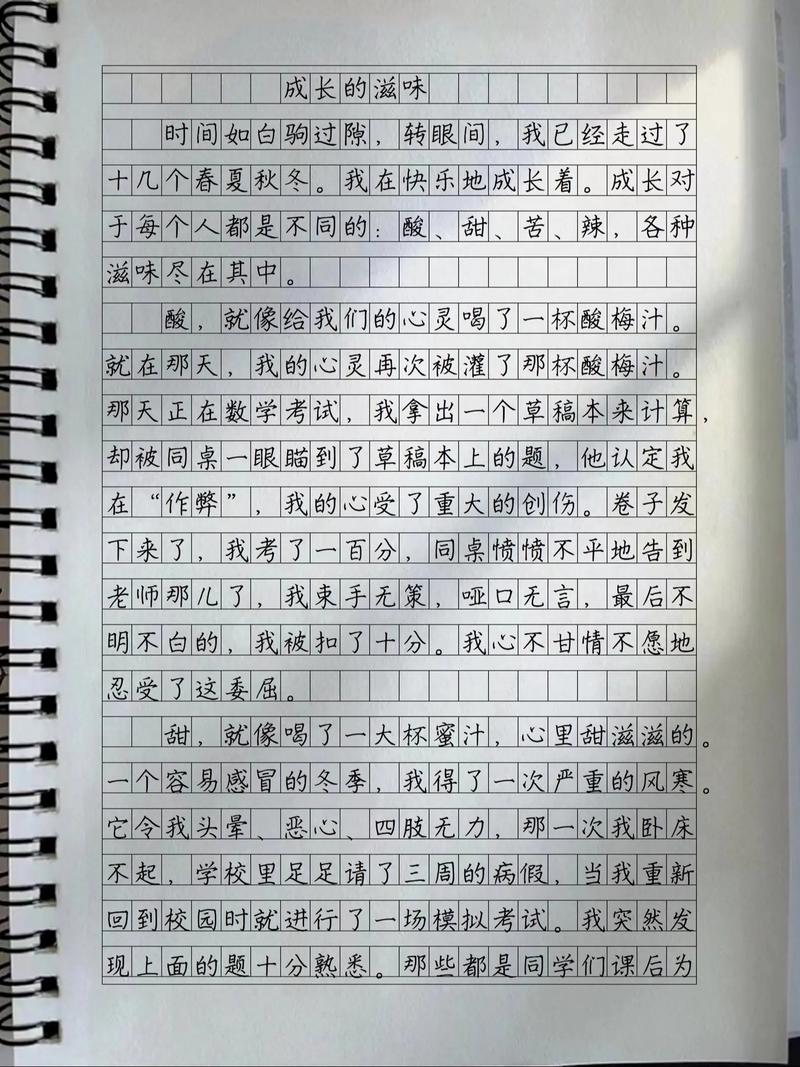 成长的滋味
时间如白驹过隙，转眼间，我已经走过了
十几个春夏秋冬。我在快乐地成长着。成长对
于每个人都是不同的：酸、甜、苦、辣，各种
滋味尽在其中。
酸，就像给我们的心灵喝了一杯酸梅汁。
就在那天，我的心灵再次被灌了那杯酸梅汁。
那天正在数学考试，我拿出一个草稿本来计算，
却被同桌一眼瞄到了草稿本上的题，他认定我
在“作弊”，我的心受了重大的创伤。卷子发
下来了，我考了一百分，同桌愤愤不平地告到
老师那儿了，我束手无策，哑口无言，最后不
明不白的，我被扣了十分。我心不甘情不愿地
忍受了这委屈。
甜，就像喝了一大杯蜜汁，心里甜滋滋的。
一个容易感冒的冬季，我得了一次严重的风寒。
它令我头晕、恶心、四肢无力，那一次我卧床
不起，学校里足足请了三周的病假，当我重新
回到校园时就进行了一场模拟考试。我突然发
现上面的题十分熟悉。那些都是同学们课后为